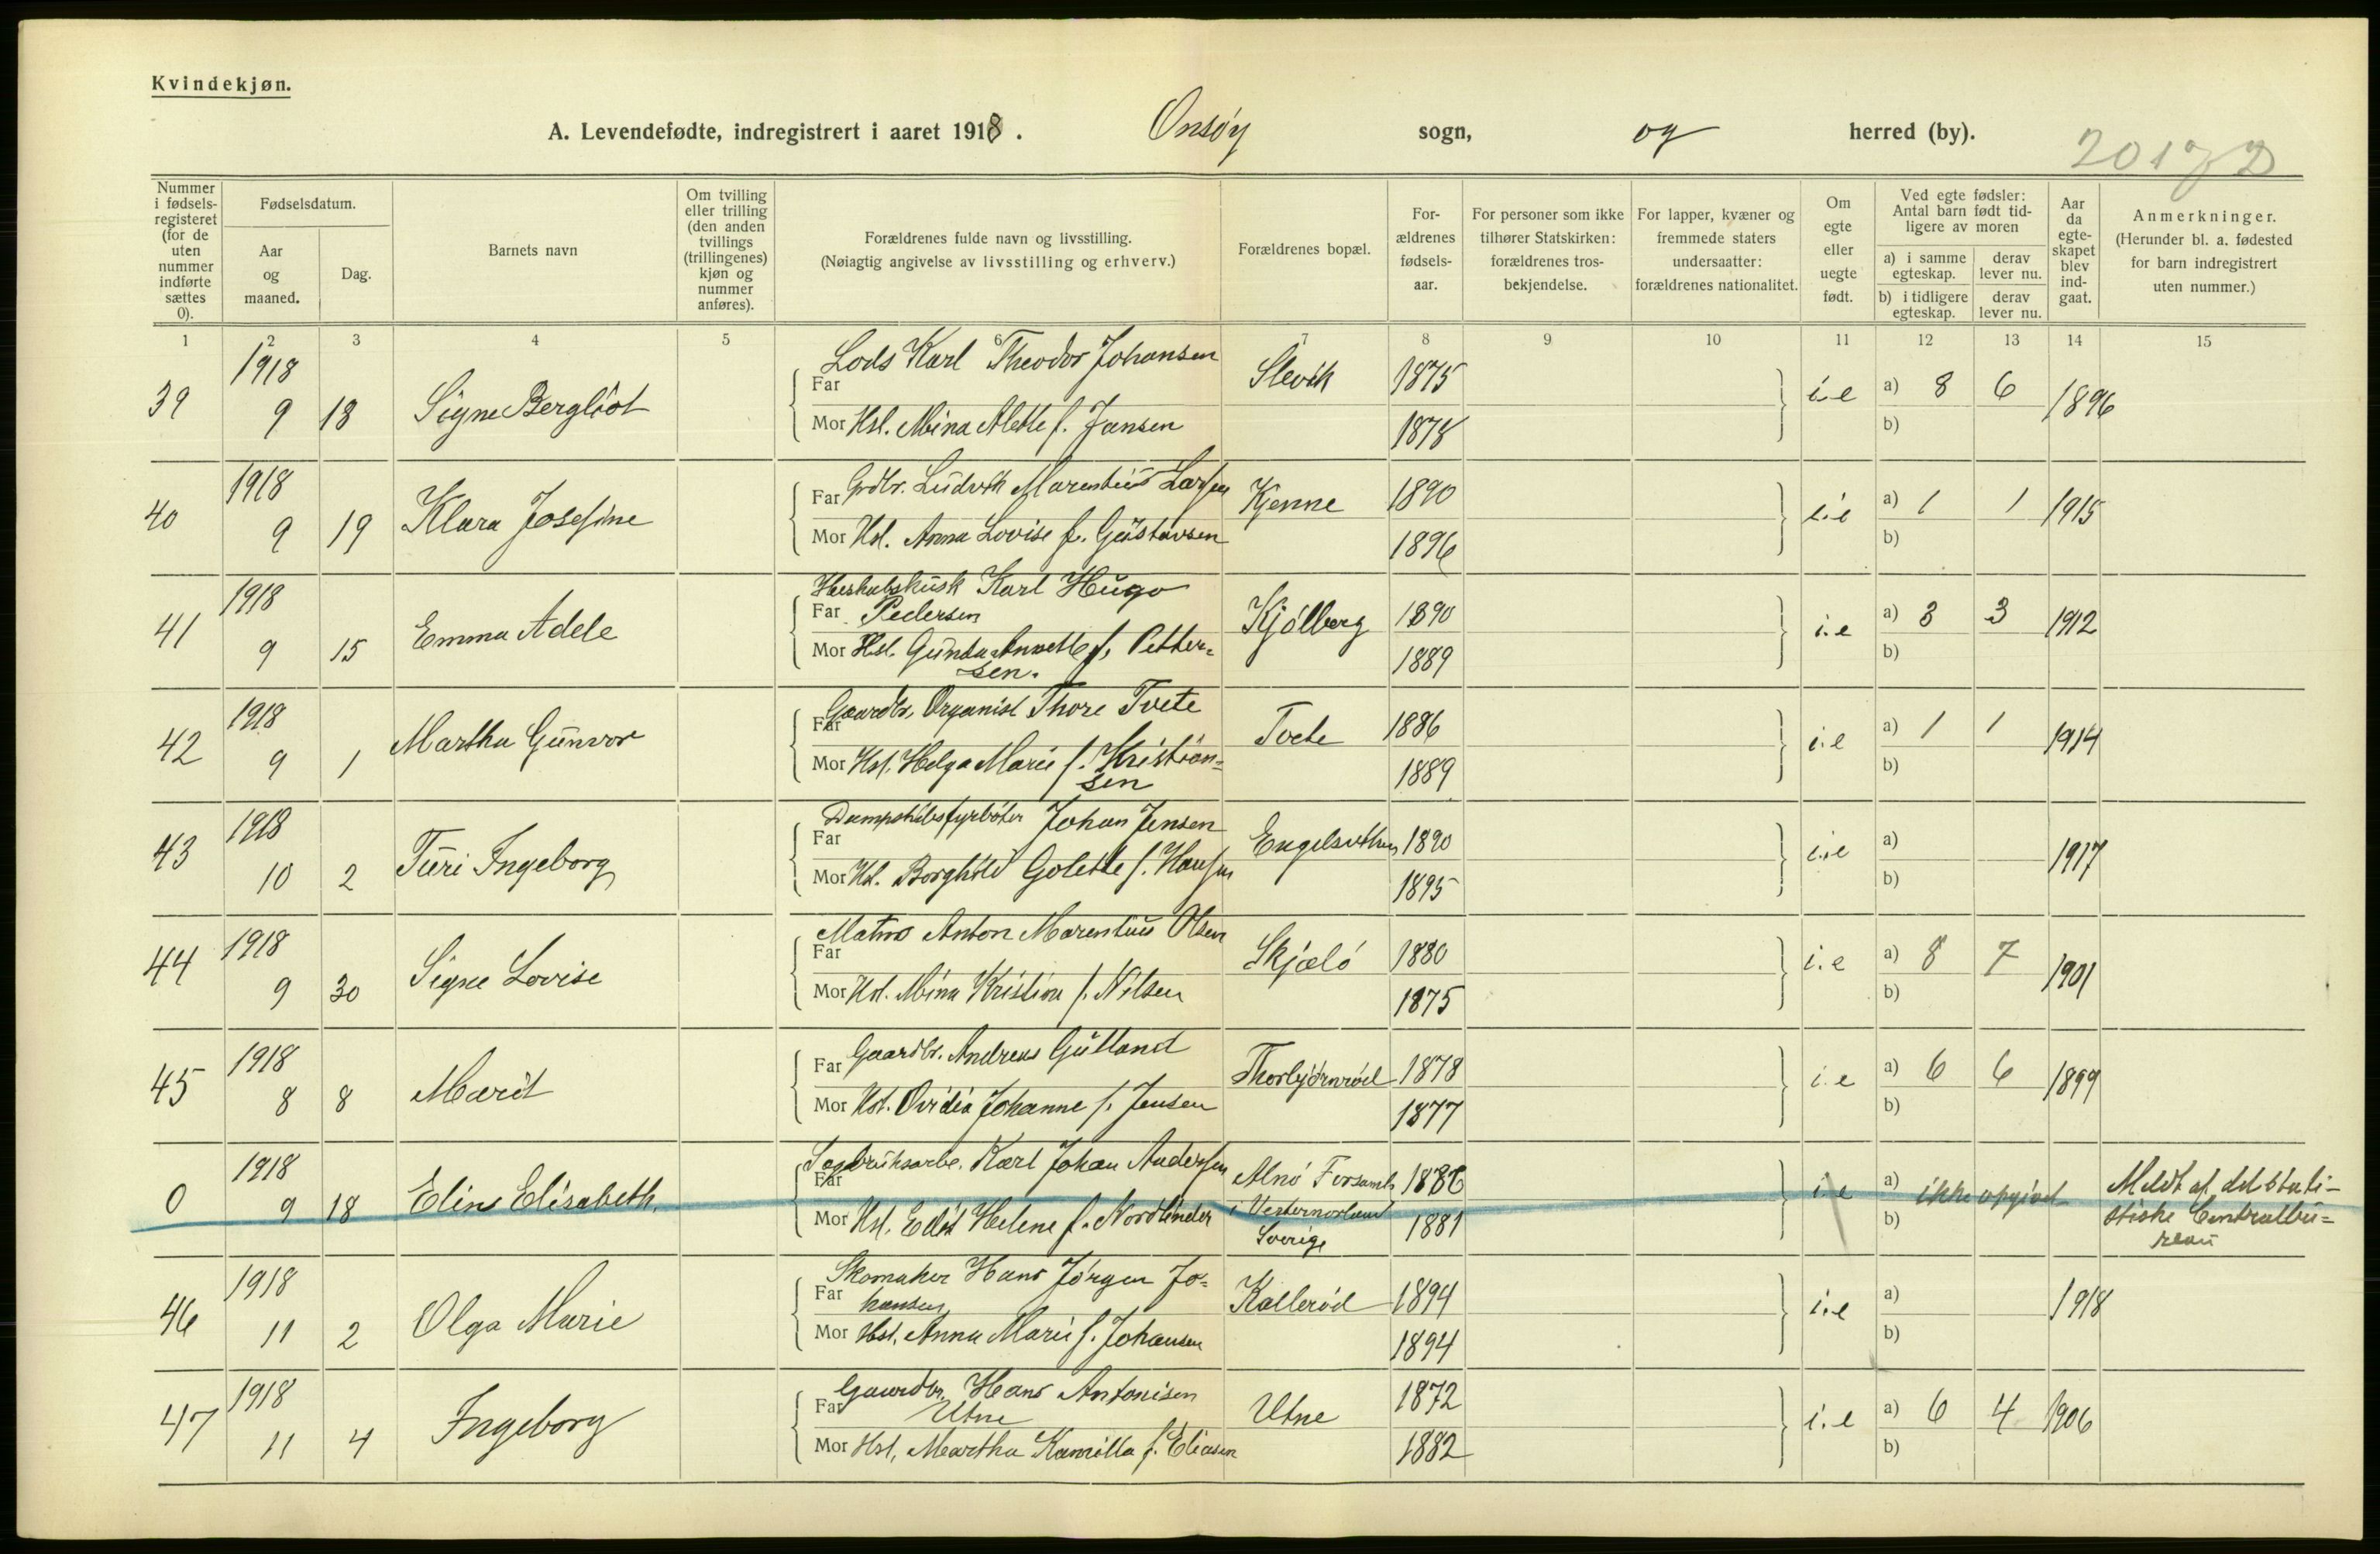 Kvindekjøn.
A. Levendefødte, indregistrert i aaret 1918. Onsøy sogn, og herred (by).
2017 D
Nummer i fødsels-registeret (for de uten nummer indførte sættes 0).
Fødselsdatum.
Aar og maaned.
Dag.
Barnets navn
Om tvilling eller trilling (den anden tvillings (trillingenes) kjøn og nummer anføres).
Forældrenes fulde navn og livsstilling.
(Nøiagtig angivelse av livsstilling og erhverv.)
Forældrenes bopæl.
For-ældrenes fødsels-aar.
For personer som ikke tilhører Statskirken: forældrenes tros-bekjendelse.
For lapper, kvæner og fremmede staters undersaatter: forældrenes nationalitet.
Om egte eller uegte født.
Ved egte fødsler: Antal barn født tid-ligere av moren
a) i samme egteskap.
derav lever nu.
b) i tidligere egteskap.
derav lever nu.
Aar da egte-skapet blev ind-gaat.
Anmerkninger.
(Herunder bl. a. fødested for barn indregistrert uten nummer.)
1 2 3 4 5 6 7 8 9 10 11 12 13 14 15
39 1918 9 18 Signe Bergliot
Lods Karl Theodor Johansen
Far
Slevik 1875 i.e a) 8 6 1896
Mor Hst. Mina Alette f. Jansen 1878 b)
40 1918 9 19 Klara Josefine
Far Grdbr. Ludvik Marentius Larsen Kjenne 1890 i.e a) 1 1 1915
Mor Hst. Anna Lovise f. Gustavsen 1896 b)
41 1918 9 15 Emma Adele
Herskabskusk Karl Hugo
Far Pedersen Kjølberg 1890 i.e a) 3 3 1912
Mor Hst. Gunda Annette f. Petter=
sen. 1889 b)
42 1918 9 1 Martha Gunvor
Far Gaardbr. Organist Thore Tvete Tvete 1886 i.e a) 1 1 1914
Mor Hst. Helga Marie f. Kristian=
sen 1889 b)
43 1918 10 2 Turi Ingeborg
Dampskibsfyrbøter Johan Jensen
Far
Engelsviken 1890 i.e a) 1917
Mor Hst. Borghild Golette f. Hansen 1895 b)
44 1918 9 30 Signe Lovise
Matros Anton Marentius Olsen
Far
Skjælø 1880 i.e a) 8 7 1901
Mor Hst. Mina Kristine f. Nilsen 1875 b)
45 1918 8 8 Marit
Far Gaardbr. Andreas Gulland Thorbjørnrød 1878 i.e a) 6 6 1899
Mor Hst. Ovidia Johanne f. Jensen 1877 b)
0 1918 9 18 Elins Elisabeth.
Sagbruksarbe. Karl Johan Andersen
Far
Alnö Forsaml. 1886 i.e a) ikke opgivet Meldt af det stati-
Mor Hst. Edit Helene f. Nordlinder i Vesternorland 1881 b) stiske Centralbu=
Sverige reau
46 1918 11 2 Olga Marie
Skomaker Hans Jørgen Jo=
Far hansen Kallerød 1894 i.e a) 1918
Mor Hst. Anna Marie f. Johansen 1894 b)
47 1918 11 4 Ingeborg
Gaardbr. Hans Antonisen
Far Utne Utne 1872 i.e a) 6 4 1906
Mor Hst. Martha Kamilla f. Eliasen 1882 b)